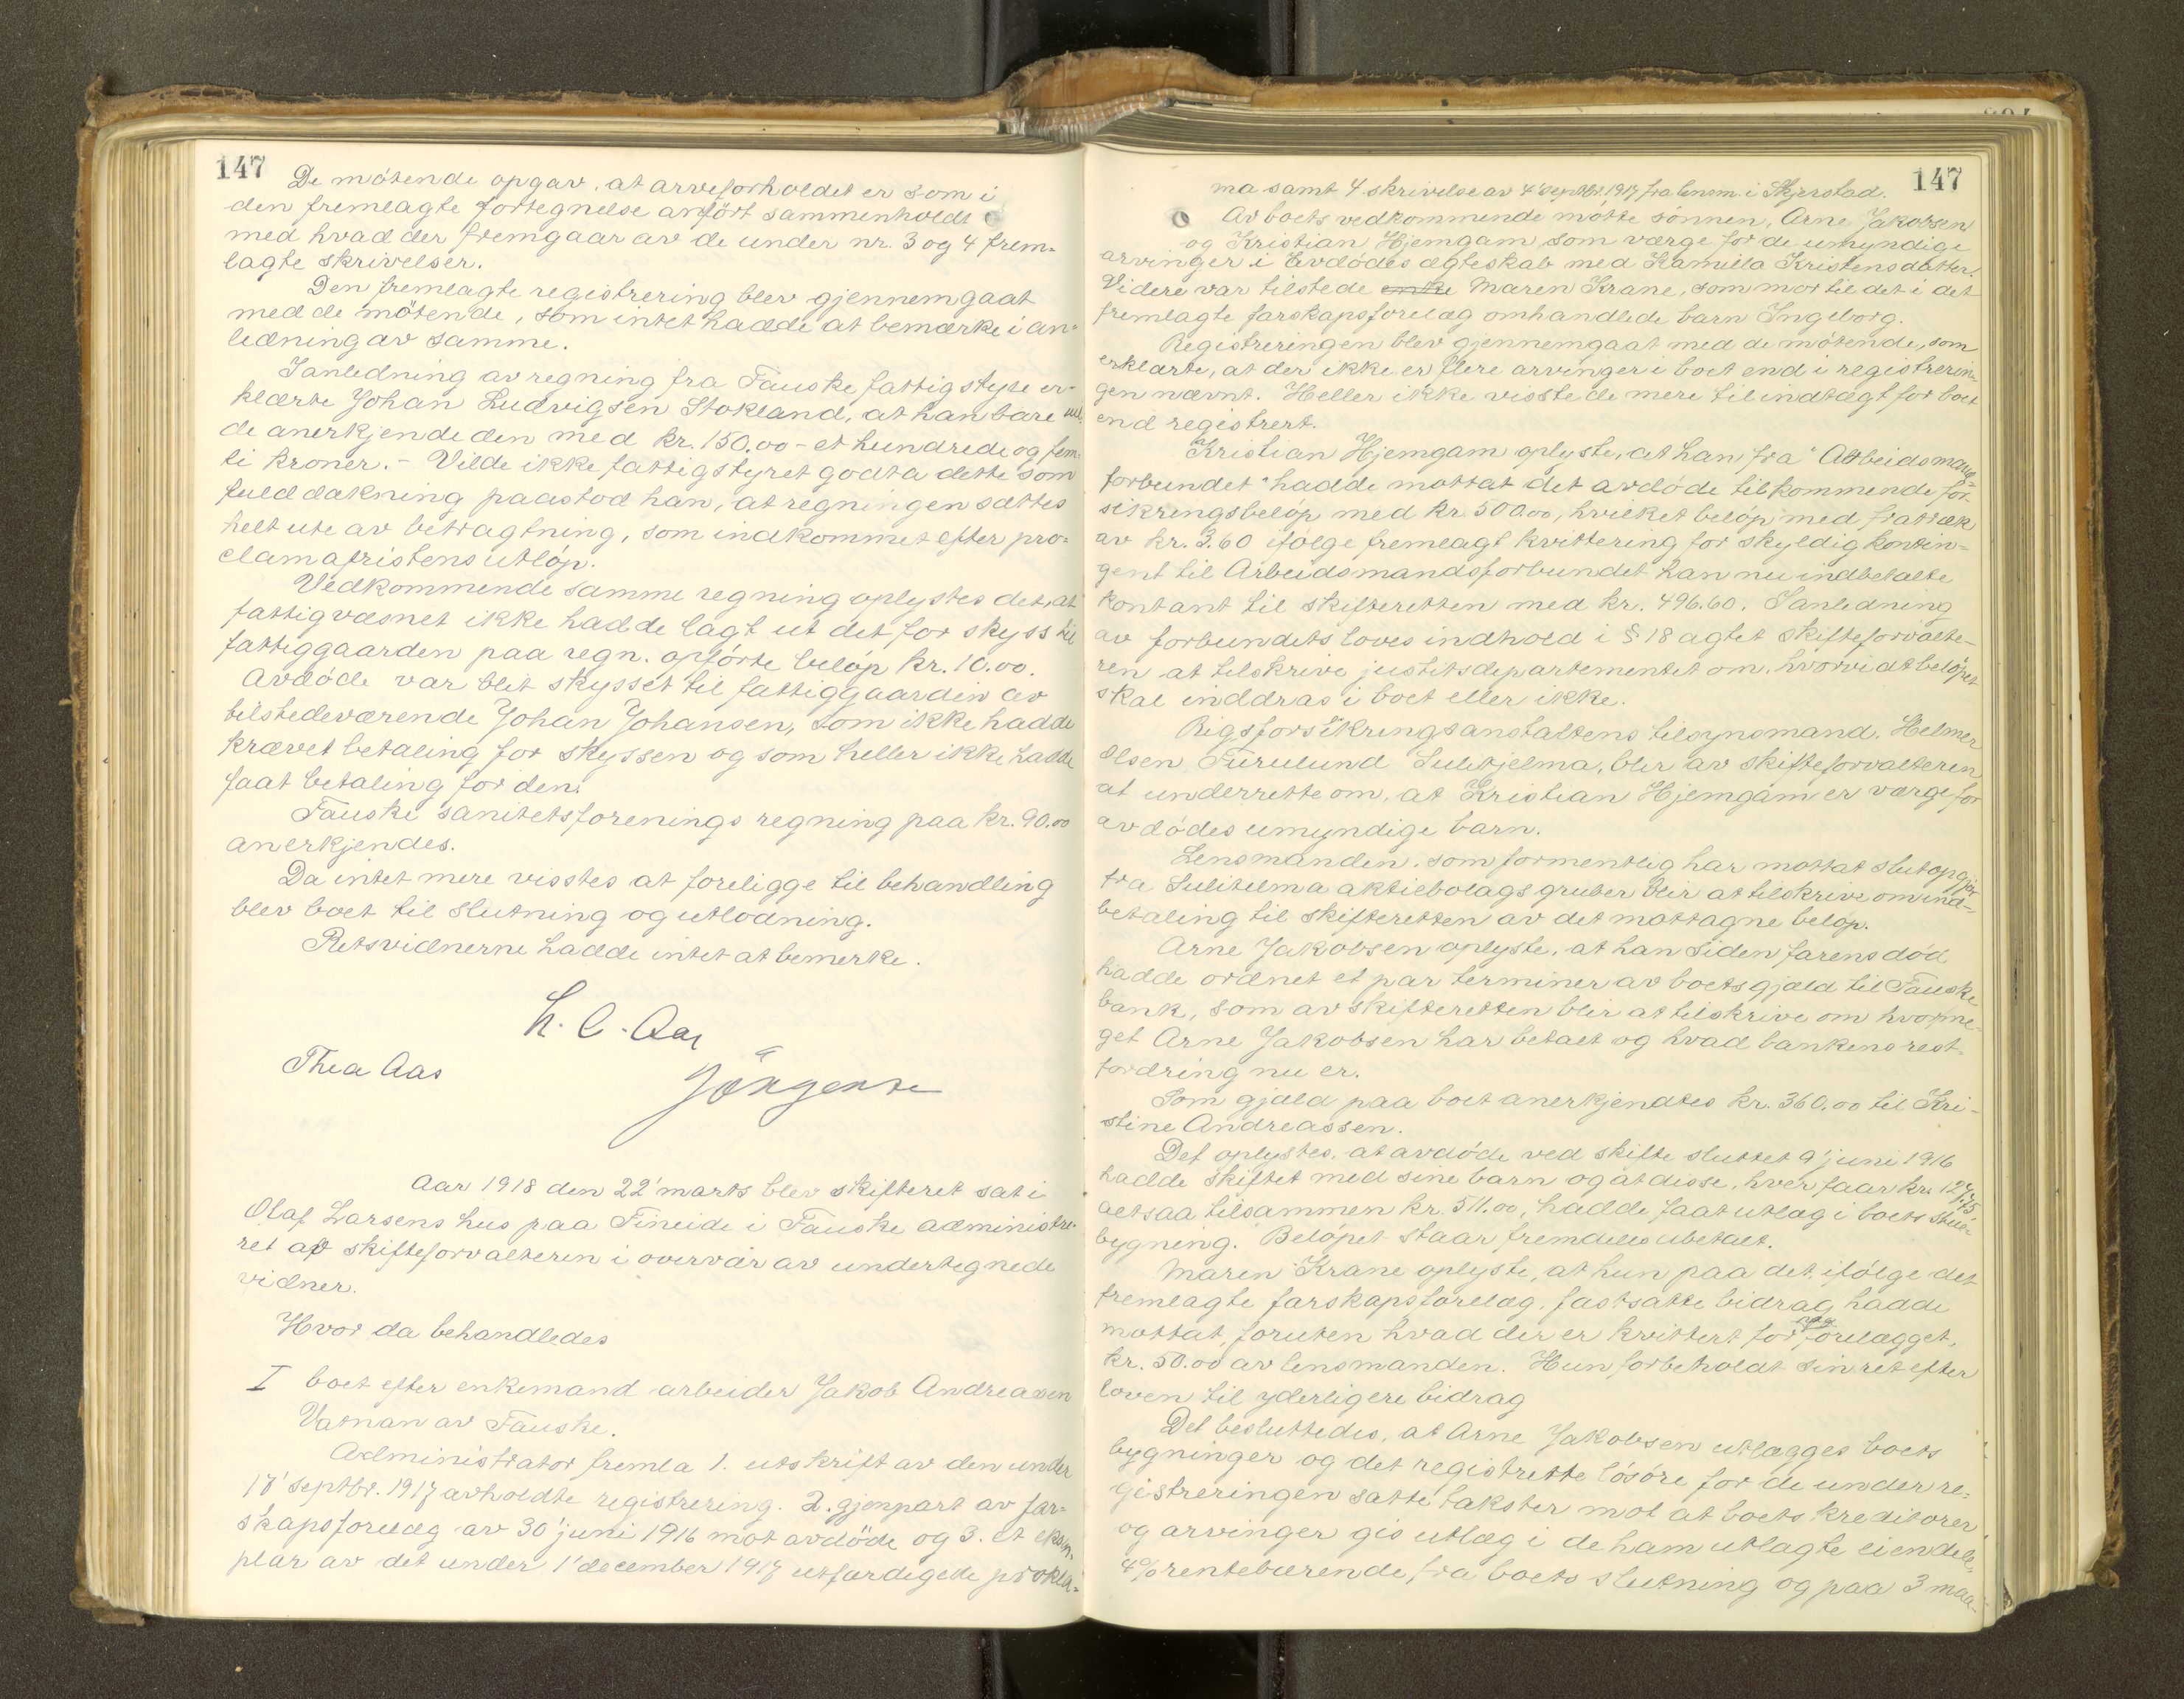 147
De mötende opgav, at arveforholdet er som i
den fremlagte fortegnelse anført sammenholdt
med hvad der fremgaar av de under nr. 3 og 4 frem-
lagte skrivelser.
Den fremlagte registrering blev gjennemgaat
med de mötende, som intet hadde at bemærke i an-
ledning av samme.
I anledning av regning fra Fauske fattigstyre er-
klærte Johan Ludvigsen Stokland, at han bare vil-
de anerkjende den med kr. 150.00 - et hundrede og fem-
ti kroner. - Vilde ikke fattigstyret godta dette som
fuld dækning paastod han, at regningen sættes
helt ute av betragtning, som indkommet efter pro-
clamafristens utløp.
Vedkommende samme regning oplystes det, at
fattigvæsnet ikke hadde lagt ut det for skyss til
fattiggaarden paa regn. opførte beløp kr. 10.00.
Avdøde var blit skysset til fattiggaarden av
tilstedeværende Johan Johansen, som ikke hadde
krævet betaling for skyssen og som heller ikke hadde
faat betaling for den.
Fauske sanitetsforenings regning paa kr. 90.00
anerkjendes.
Da intet mere visstes at foreligge til behandling
blev boet til slutning og utlodning.
Retsvidnerne hadde intet at bemerke.
H. C. Aas
Thea Aas
Jörgensen
Aar 1918 den 22' marts blev skifteret sat i
Olaf Larsens hus paa Fineide i Fauske administre-
ret af skifteforvalteren i overvær av undertegnede
vidner.
Hvor da behandledes
I boet efter enkemand arbeider Jakob Andreassen
Vatnan av Fauske.
Administrator fremla 1. utskrift av den under
17' septbr. 1917 avholdte registrering. 2. gjenpart av far-
skapsforelæg av 30' juni 1916 mot avdöde og 3. et eksem-
plar av det under 1' december 1917 utfærdigede prokla-
147
ma samt 4. skrivelse av 4' septbr. 1917 fra lensm. i Skjerstad.
Av boets vedkommende møtte sønnen, Arne Jakobsen
og Kristian Hjemgam som værge for de umyndige
arvinger i avdødes ægteskab med Kamilla Kristensdatter.
Videre var tilstede enke Maren Krane, som mor til det i det
fremlagte farskapsforelæg omhandlede barn Ingeborg.
Registreringen blev gjennemgaat med de møtende, som
erklærte, at der ikke er flere arvinger i boet end i registrerin-
gen nævnt. Heller ikke visste de mere til indtægt for boet
end registrert.
Kristian Hjemgam oplyste, at han fra "Arbeidsmands-
forbundet" hadde mottat det avdøde tilkommende for-
sikringsbeløp med kr. 500.00, hvilket beløp med fratræk
av kr. 3.60 ifølge fremlagt kvittering for skyldig kontin-
gent til Arbeidsmandsforbundet han nu indbetalte
kontant til skifteretten med kr. 496.60. I anledning
av forbundets loves indhold i § 18 agtet skifteforvalte-
ren at tilskrive justitsdepartementet om, hvorvidt beløpet
skal inddras i boet eller ikke.
Rigsforsikringsanstaltens tilsynsmand, Helmer
Olsen Furulund Sulitjelma, blir av skifteforvalteren
at underrette om, at Kristian Hjemgam er værge for
avdødes umyndige barn.
Lensmanden, som formentlig har mottat slutopgjør
fra Sulitelma aktiebolags gruber blir at tilskrive om ind-
betaling til skifteretten av det mottagne beløp.
Arne Jakobsen oplyste, at han siden farens død
hadde ordnet et par terminer av boets gjæld til Fauske
bank, som av skifteretten blir at tilskrive om hvorme-
get Arne Jakobsen har betalt og hvad bankens rest-
fordring nu er.
Som gjæld paa boet anerkjendtes kr. 360.00 til Kri-
stine Andreassen.
Det oplystes, at avdøde ved skifte sluttet 9' juni 1916
hadde skiftet med sine barn og at disse, hver faar kr. 127.75
altsaa tilsammen kr. 511.00, hadde faat utlæg i boets stue-
bygning. Beløpet staar fremdeles ubetalt.
Maren Krane oplyste, at hun paa det, ifølge det
fremlagte farskapsforelæg, fastsatte bidrag hadde
mottat, foruten hvad der er kvittert for paa forelægget,
kr. 50.00 av lensmanden. Hun forbeholdt sin ret efter
loven til yderligere bidrag
Det besluttedes, at Arne Jakobsen utlægges boets
bygninger og det registrerte løsøre for de under re-
gistreringen satte takster mot at boets kreditorer
og arvinger gis utlæg i de ham utlagte eiendele,
4% rentebærende fra boets slutning og paa 3 maa-